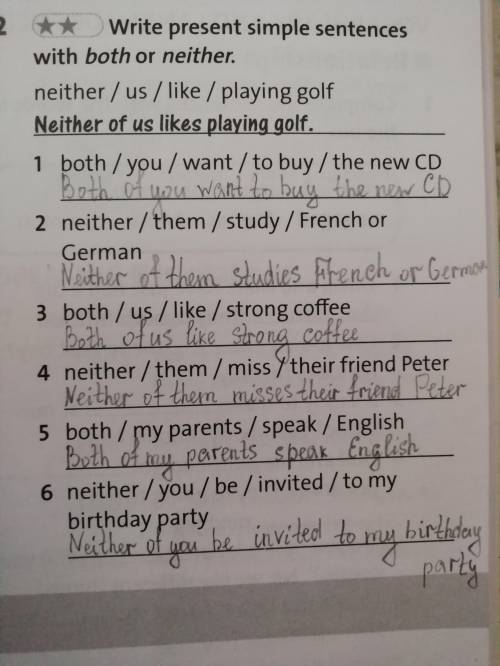 2 ★★ Write present simple sentences
with both or neither.
neither / us / like / playing golf
Neither of us likes playing golf.
1 both / you / want / to buy / the new CD
Both of you want to buy the new CD
2 neither / them / study / French or
German
Neither of them studies French or German
3 both / us / like / strong coffee
Both of us like strong coffee
4 neither / them / miss / their friend Peter
Neither of them misses their friend Peter
5 both / my parents / speak / English
Both of my perents speak English
6 neither / you / be / invited / to my
birthday party
Neither of you be invited to my birthday
party